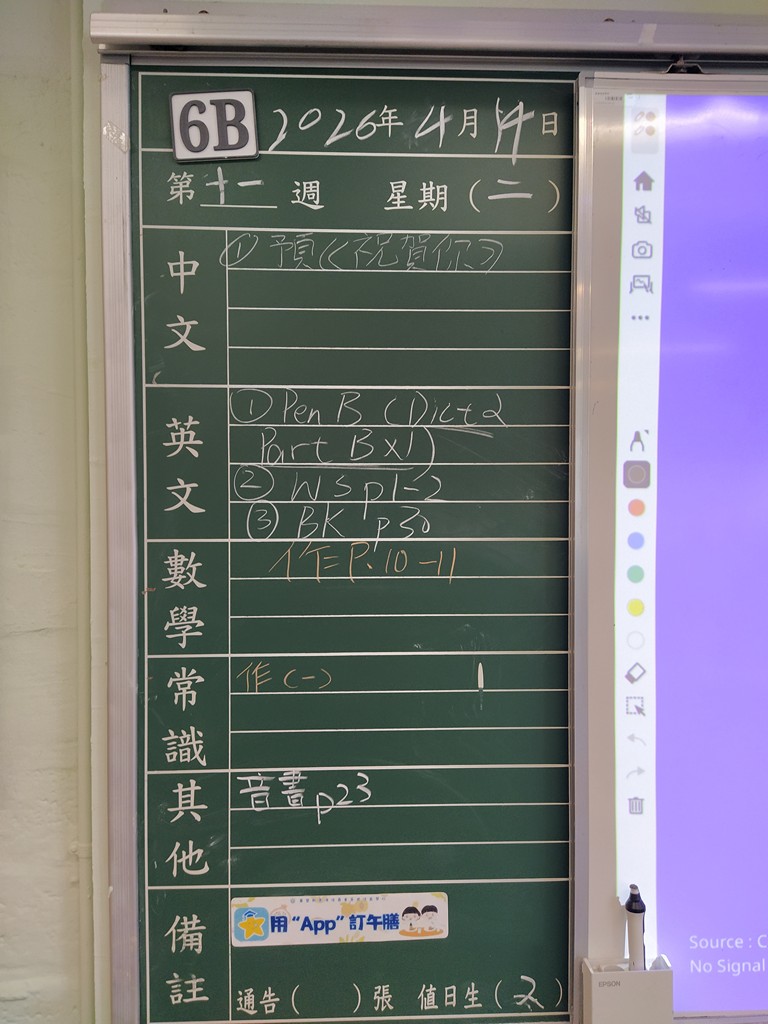 6B 2026年4月14日
第十一週 星期(二)
中文
① 預《祝賀你》
英文
① Pen B (Dict 2
Part B x1)
② WS p1-2
③ BK p30
數學
作=P.10-11
常識
作(一)
其他
音書p23
備註
用“App”訂午膳
通告( )張 值日生( )
Source : C
No Signal
EPSON